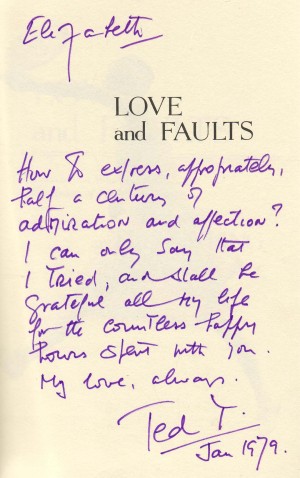 Elizabeth
LOVE
and FAULTS
How to express, appropriately,
half a century of
admiration and affection?
I can only say that
I tried, and shall be
grateful all my life
for the countless happy
hours spent with you.
My love, always.
Ted T.
Jan 1979.